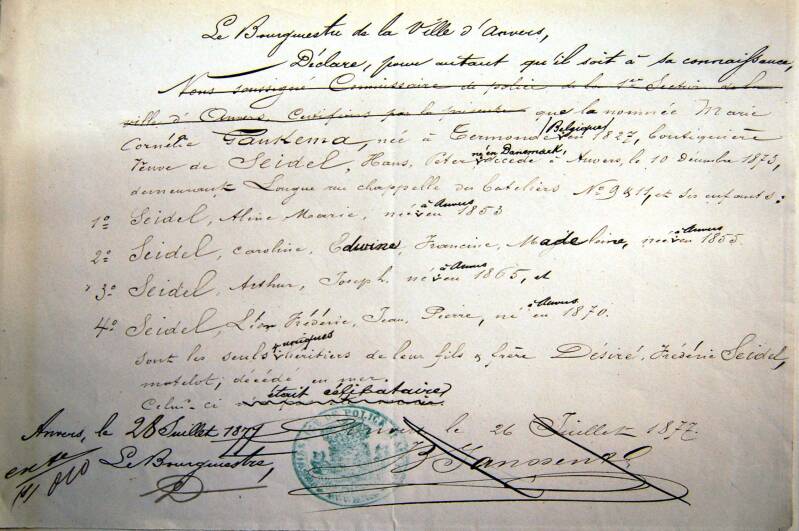 Le Bourgmestre de la Ville d'Anvers,
Déclare, pour autant qu'il soit à sa connaissance,
Nous soussigné Commissaire de police de la 1re Section de la
ville d'Anvers, Certifions par la présente que la nommée Marie
Cornélie Taukema, née à Termonde (Belgique) en 1827, boutiquière
Veuve de Seidel, Hans, Peter né en Danemark, décédé à Anvers, le 10 Décembre 1873,
demeurant Longue rue chappelle des bateliers No 9 & 11, et ses enfants:
1o Seidel, Aline Marie, née à Anvers en 1853
2o Seidel, Caroline, Edwine, Francine, Madeleine, née à Anvers en 1855.
3o Seidel, Arthur, Joseph, né à Anvers en 1865, et
4o Seidel, Léon, Frédéric, Jean, Pierre, né à Anvers en 1870.
sont les seuls & uniques héritiers de leur fils & frère Désiré, Frédéric Seidel,
matelot, décédé en mer.
Celui-ci était célibataire
Anvers, le 28 Juillet 1877 Anvers le 26 Juillet 1877
Le Bourgmestre, Janssens